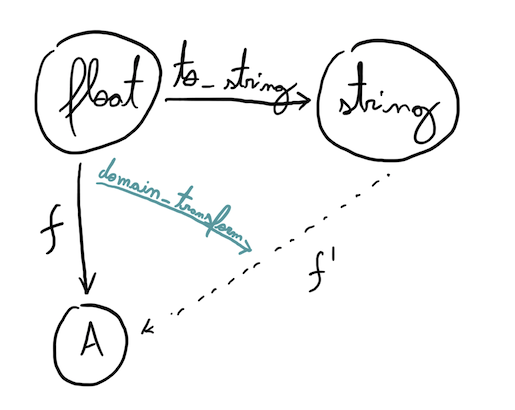 float
to_string
string
domain_transform
f
f'
A